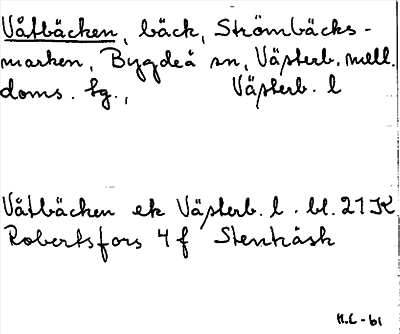 Våtbäcken, bäck, Strömbäcks-
marken, Bygdeå sn, Västerb. mell.
doms. tg., Västerb. l
Våtbäcken ek Västerb. l. bl. 21 K
Robertsfors 4 f Stenkåsk
H.E -61